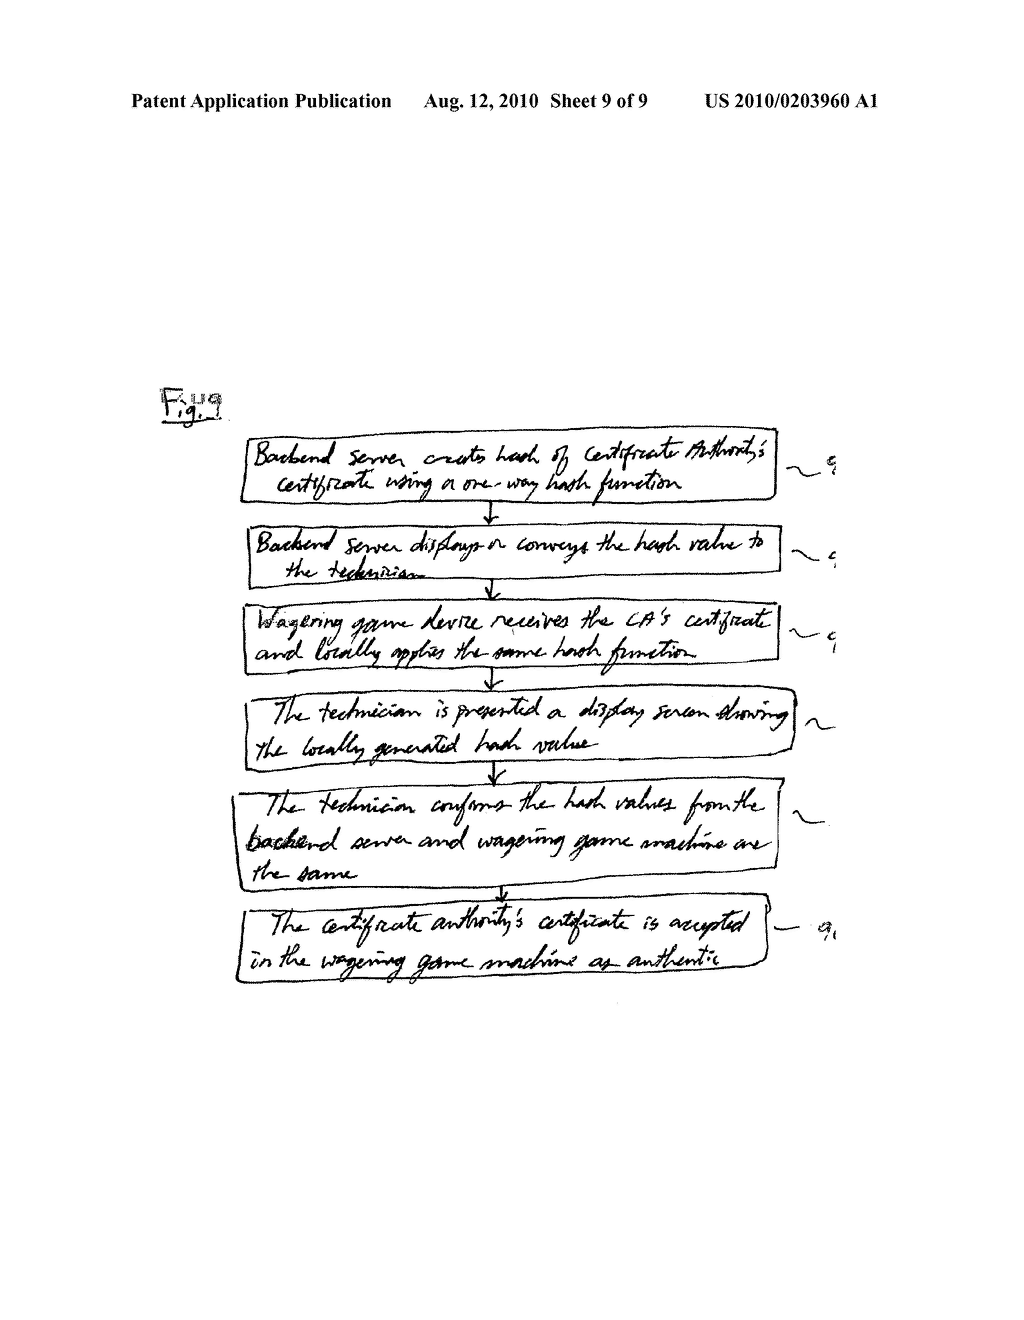 Patent Application Publication Aug. 12, 2010 Sheet 9 of 9 US 2010/0203960 A1
Fig. 9
Backend server creates hash of certificate Authority's
certificate using a one-way hash function
Backend server displays or conveys the hash value to
the technician
Wagering game device receives the CA's certificate
and locally applies the same hash function
The technician is presented a display screen showing
the locally generated hash value
The technician confirms the hash values from the
backend server and wagering game machine are
the same
The certificate authority's certificate is accepted
in the wagering game machine as authentic